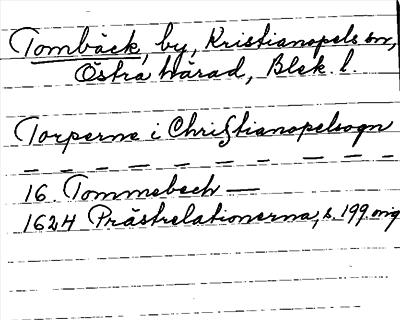 Tombäck, by, Kristianopels sn,
Östra härad, Blek. l.
Torperne i Christianopelsogn
— — — — — — — — — —
16. Tommebech —
1624 Prästrelationerna, s. 199 orig